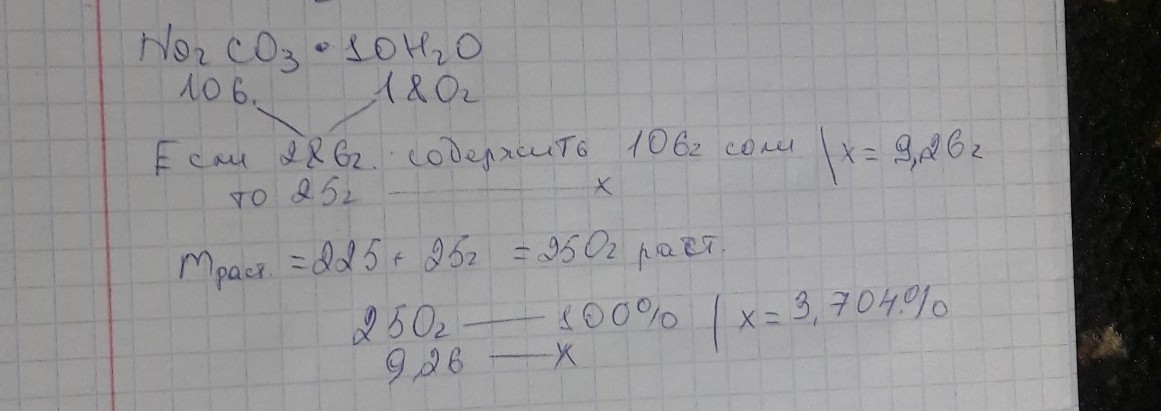 Na₂CO₃ • 10H₂O
106. 180г
Если 286г. содержит 106г соли | x = 9,26г
то 25г — x
mраст. = 225 + 25г = 250г раст.
250г — 100% | x = 3,704%
9,26 — x